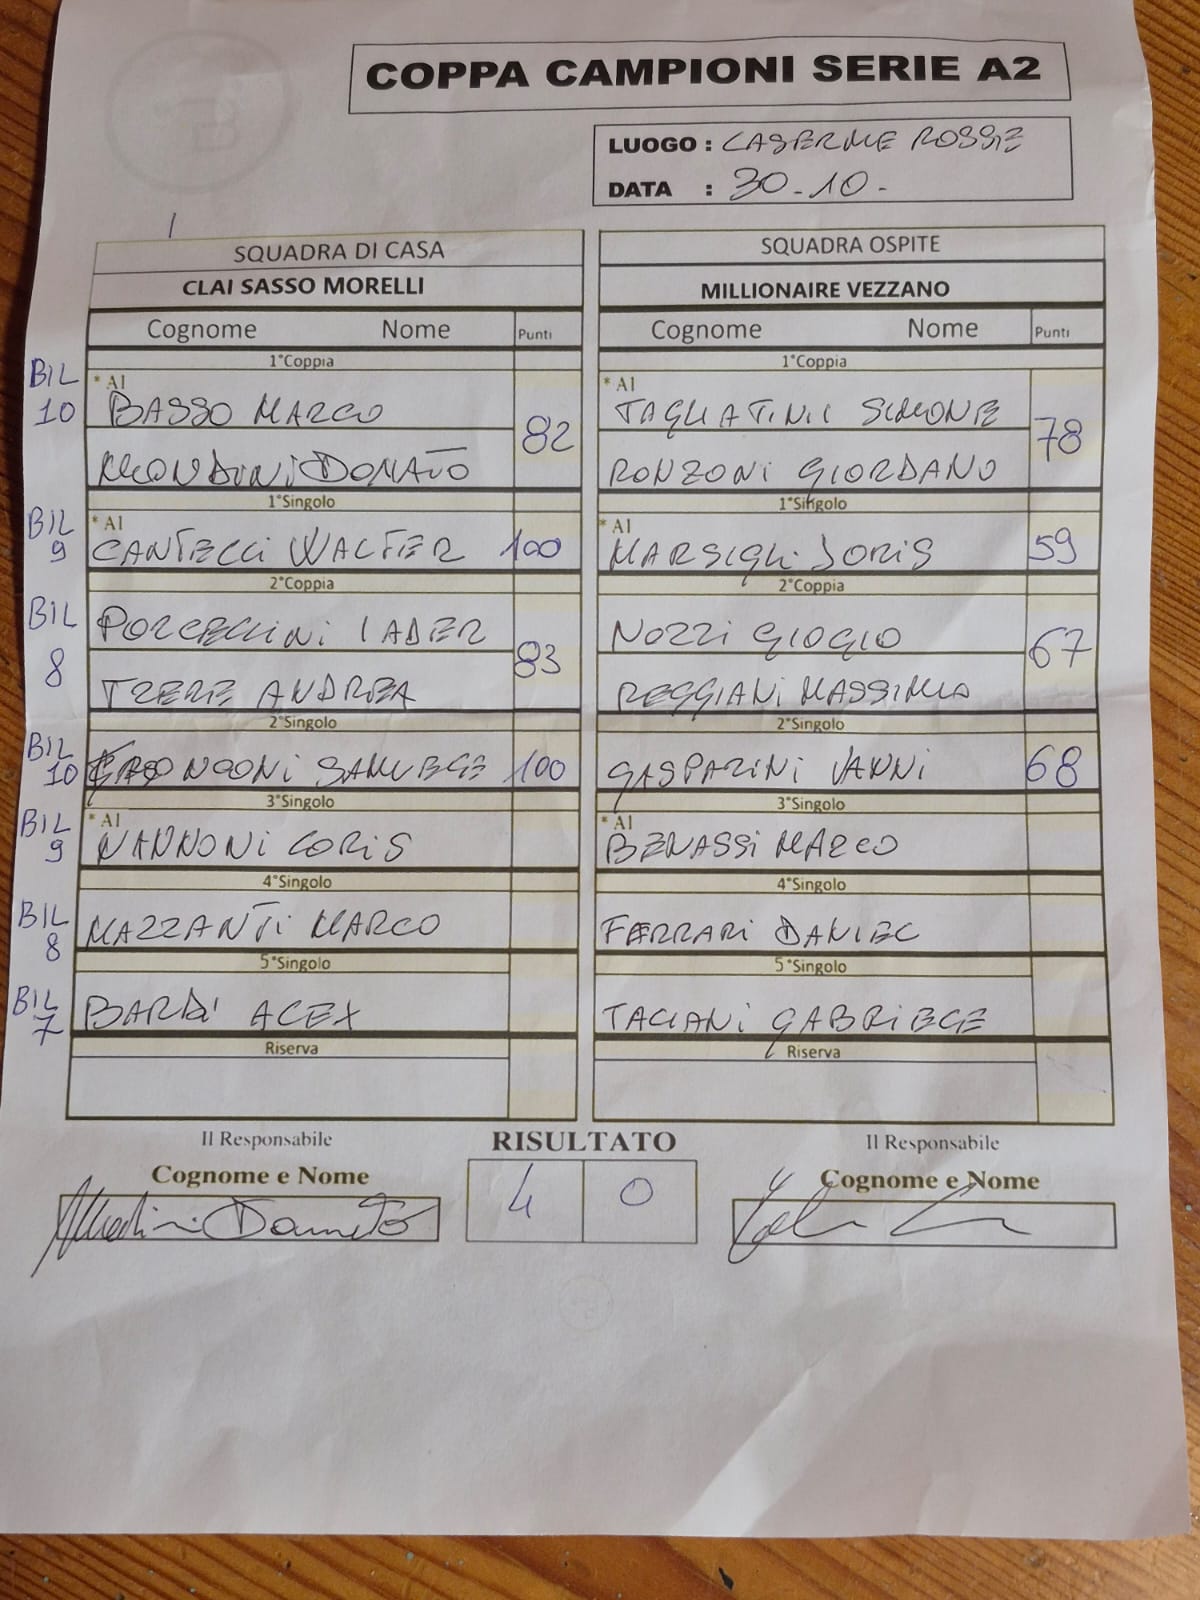 COPPA CAMPIONI SERIE A2
LUOGO : CASERME ROSSE
DATA : 30-10-
SQUADRA DI CASA
CLAI SASSO MORELLI
Cognome Nome Punti
1°Coppia
BIL 10
* A1
BASSO MARCO
82
MONDINI DONATO
1°Singolo
BIL 9
* A1
CANTELLI WALTER 100
2°Coppia
BIL 8
PORCELLINI IADER
83
TRERE ANDREA
2°Singolo
BIL 10
SAMUELE 100
3°Singolo
BIL 9
* A1
NANNONI LORIS
4°Singolo
BIL 8
MAZZANTI MARCO
5°Singolo
BIL 7
BARDI ALEX
Riserva
SQUADRA OSPITE
MILLIONAIRE VEZZANO
Cognome Nome Punti
1°Coppia
* A1
TAGLIATINII SIMONE
78
RONZONI GIORDANO
1°Singolo
* A1
MARSIGLI JORIS 59
2°Coppia
NOZZI GIOGIO
67
REGGIANI MASSIMO
2°Singolo
GASPARINI VANNI 68
3°Singolo
* A1
BENASSI MARCO
4°Singolo
FERRARI DANIEL
5°Singolo
TAGIANI GABRIELE
Riserva
Il Responsabile
Cognome e Nome
Mondini Donato
RISULTATO
4 0
Il Responsabile
Cognome e Nome